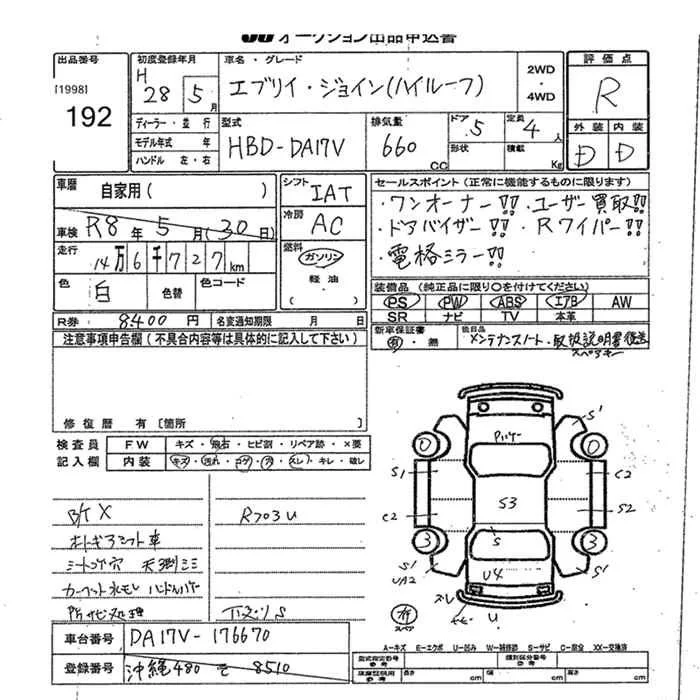 オークション出品申込書
出品番号
[1998]
192
初度登録年月
H 28 5月
車名・グレード
エブリイ・ジョイン(ハイルーフ)
2WD
4WD
評価点
R
外装 内装
D D
ディーラー・並 行
モデル年式 年
ハンドル 左・右
型式
HBD-DA17V
排気量
660 CC
ドア 5
形状
定員 4人
積載 Kg
車歴 自家用( )
車検 R8年5月(30日)
走行 14万6千727km
色 白 色替 色コード
シフト IAT
冷房 AC
燃料
ガソリン
軽油
セールスポイント (正常に機能するものに限ります)
・ワンオーナー!! ・ユーザー買取!!
・ドアバイザー!! ・Rワイパー!!
・電格ミラー!!
装備品 (純正品に限り○を付けてください)
PS PW ABS エアB AW
SR ナビ TV 本革
R券 8400円 名変通知期限 月 日
新車保証書
有・無
後日品
メンテナンスノート・取扱説明書後送
スペアキー
注意事項申告欄 (不具合内容等は具体的に記入して下さい)
修復歴 有 [箇所 ]
検査員
記入欄
FW キズ・飛石・ヒビ割・リペア跡・×要
内装 キズ・汚れ・コゲ・穴・スレ・キレ・破レ
R703U
オートギアシフト車
下廻りS
車台番号 DA17V-176670
登録番号 沖縄480 そ 8510
S1
0
0
S1
C2
S3
C2
S2
3
S
3
S1
UA2
U4
S1
スレ
U
有
スペア
A-キズ E-エクボ U-凹み W-補修跡 S-サビ C-腐食 XX-交換済
型式指定番号
参考
類別区分番号
参考
長さ cm 幅 cm 高さ cm